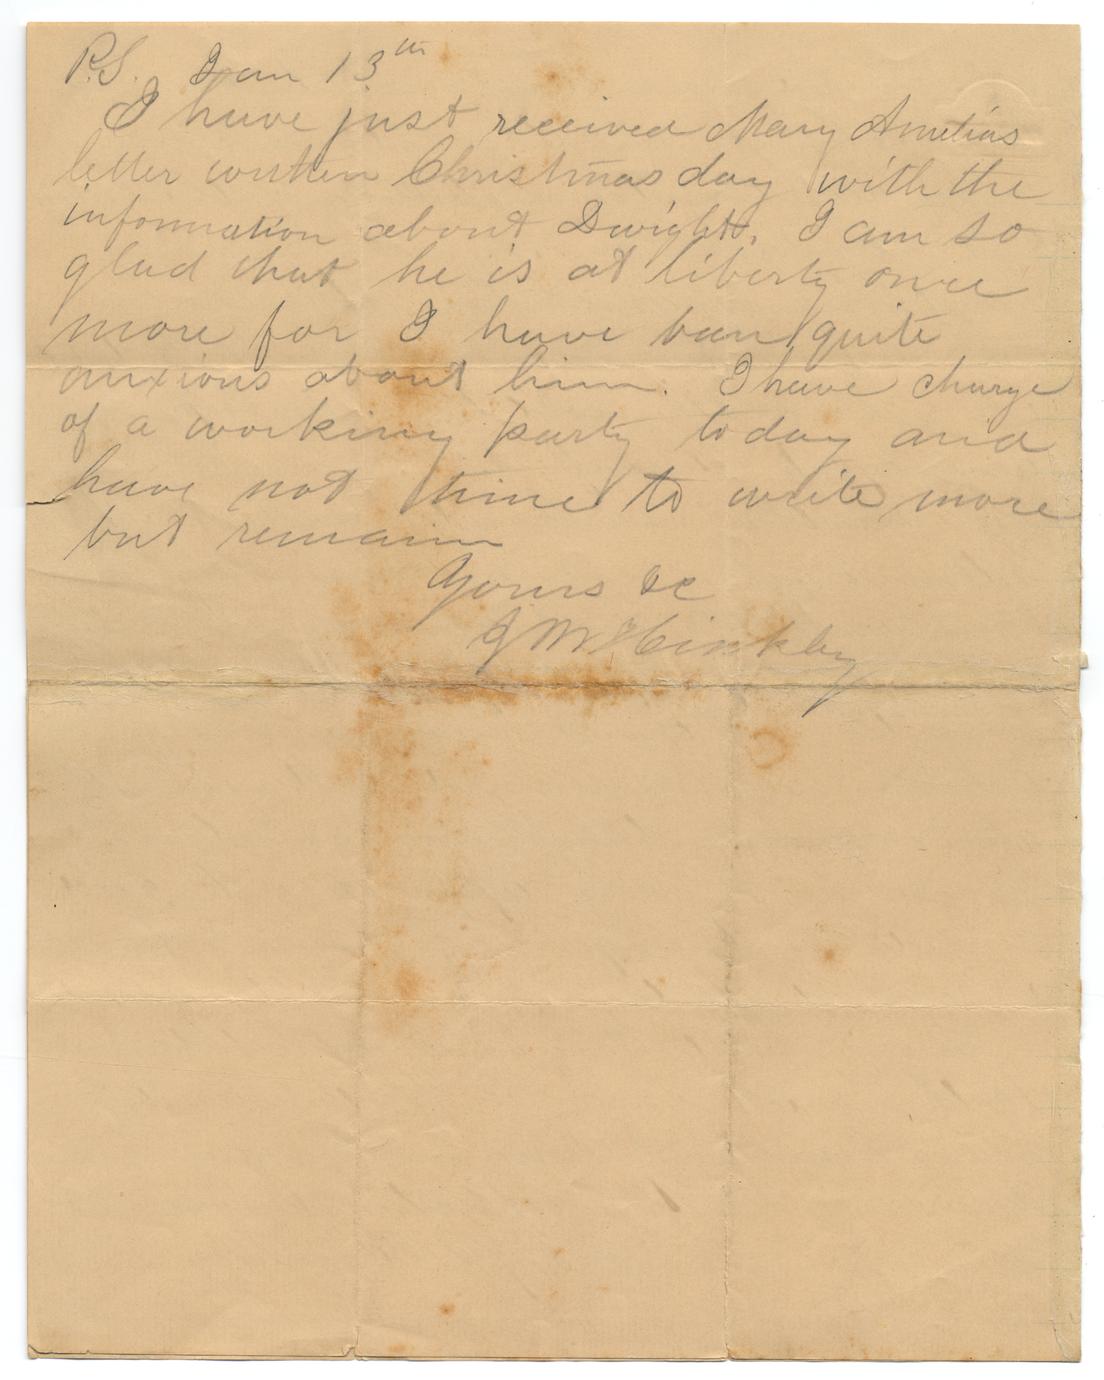 P.S. Jan 13th
I have just received Mary Amelias
letter written Christmas day with the
information about Dwight. I am so
glad that he is at liberty once
more for I have been quite
anxious about him. I have charge
of a working party today and
have not time to write more
but remain
Yours &c
J W Hinkley